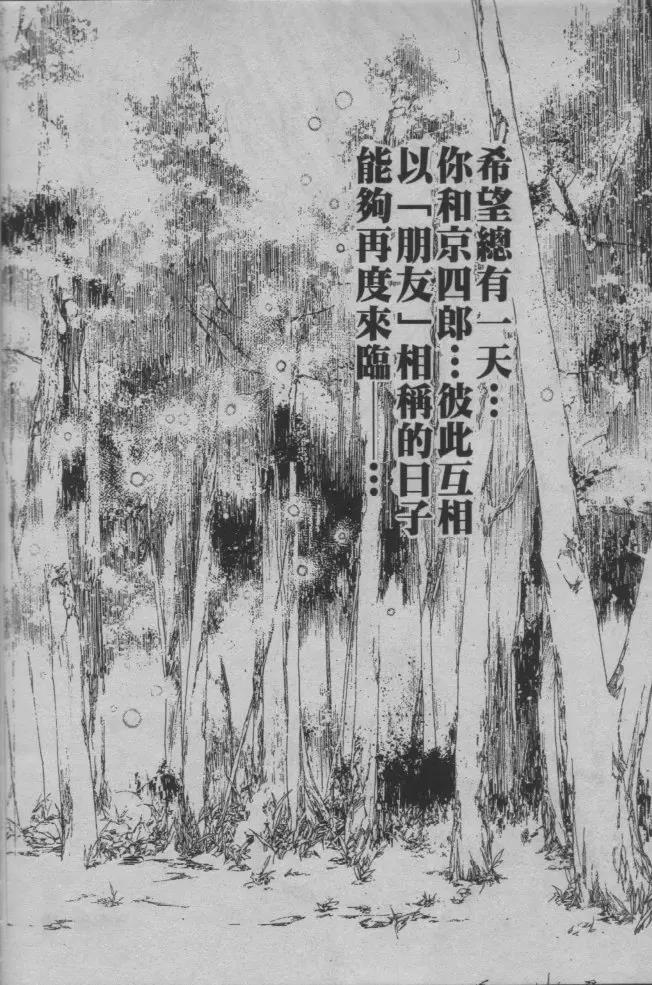 希望總有一天…
你和京四郎…彼此互相
以「朋友」相稱的日子
能夠再度來臨——…